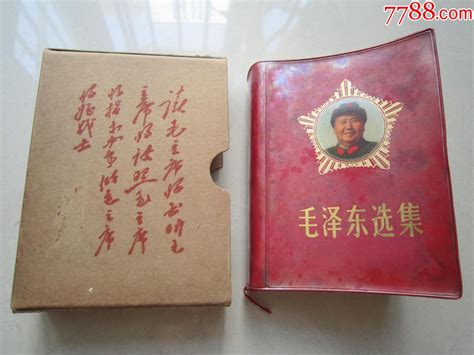 读毛主席的书听毛
主席的话照毛主席
的指示办事做毛主席
的好战士
毛泽东选集
7788.com